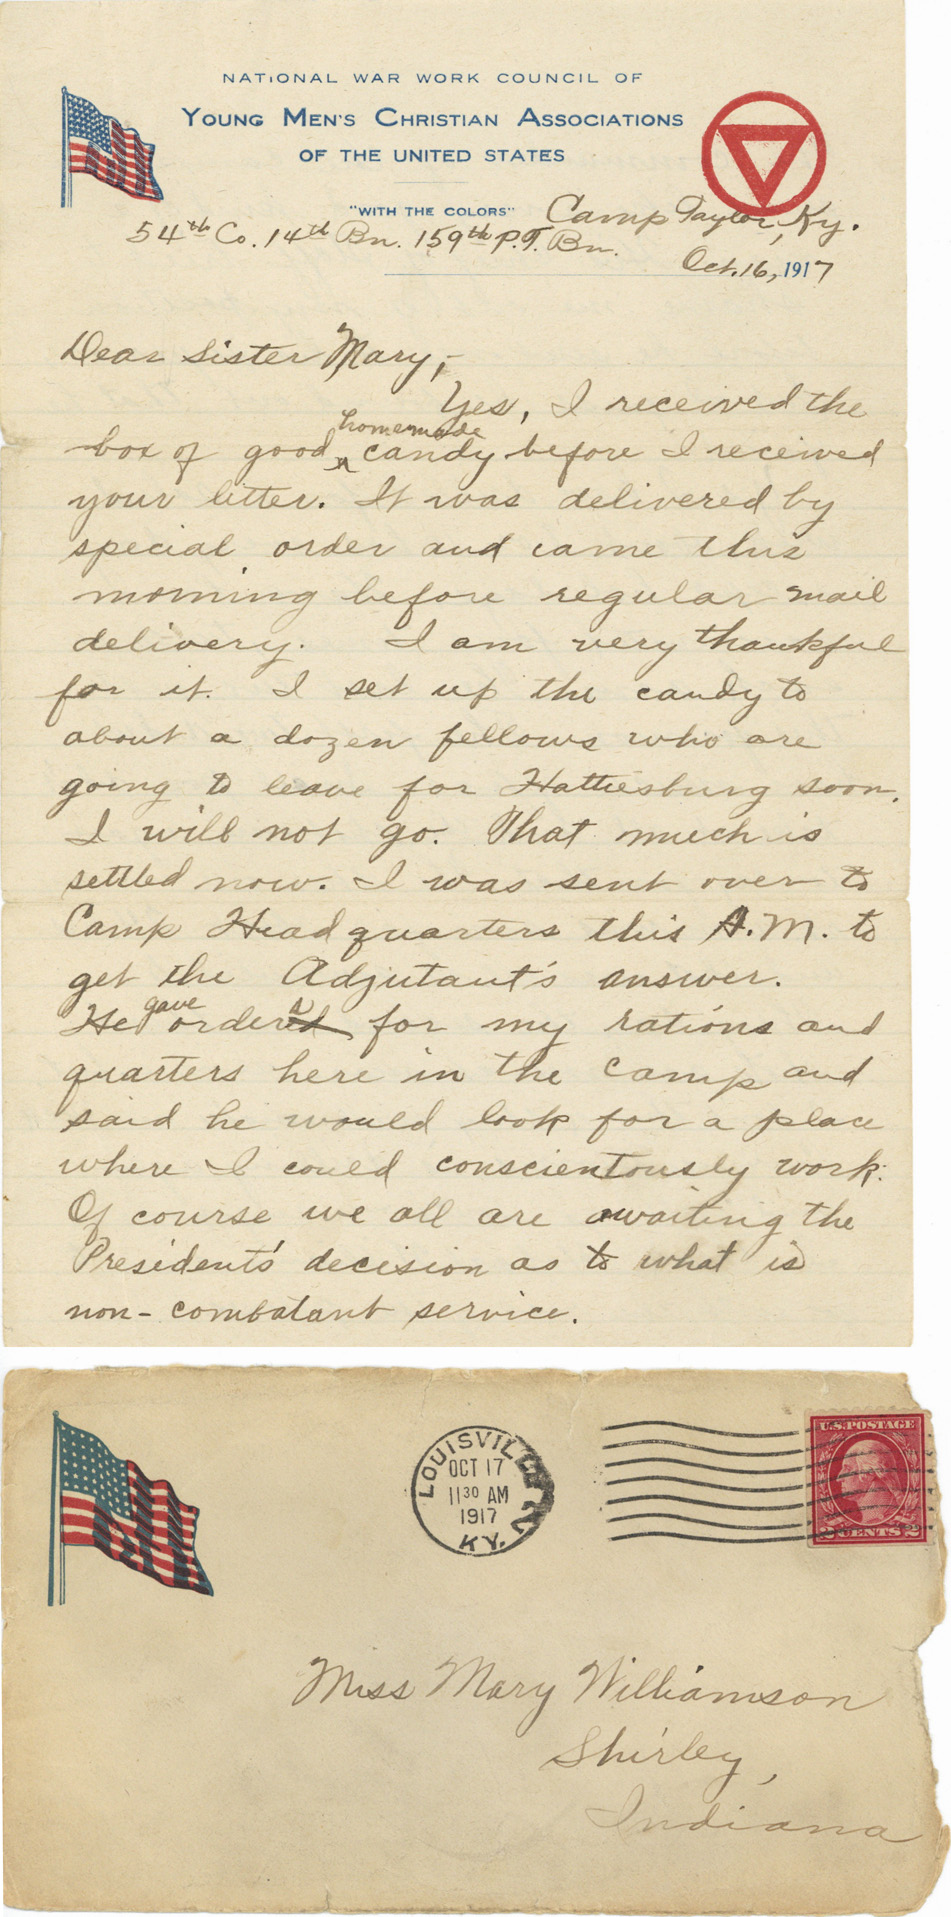 NATIONAL WAR WORK COUNCIL OF
YOUNG MEN'S CHRISTIAN ASSOCIATIONS
OF THE UNITED STATES
"WITH THE COLORS"
Camp Taylor, Ky.
54th Co. 14th Bn. 159th P.T. Bn.
Oct. 16, 1917
Dear Sister Mary,-
Yes, I received the
homemade
box of good candy before I received
your letter. It was delivered by
special order and came this
morning before regular mail
delivery. I am very thankful
for it. I set up the candy to
about a dozen fellows who are
going to leave for Hattiesburg soon.
I will not go. That much is
settled now. I was sent over to
Camp Headquarters this A.M. to
get the Adjutant's answer.
He gave orders for my rations and
quarters here in the camp and
said he would look for a place
where I could conscientously work.
Of course we all are awaiting the
President's decision as to what is
non-combatant service.
LOUISVILLE
OCT 17
11 30 AM
1917
KY.
U.S. POSTAGE
2 CENTS 2
Miss Mary Williamson
Shirley,
Indiana